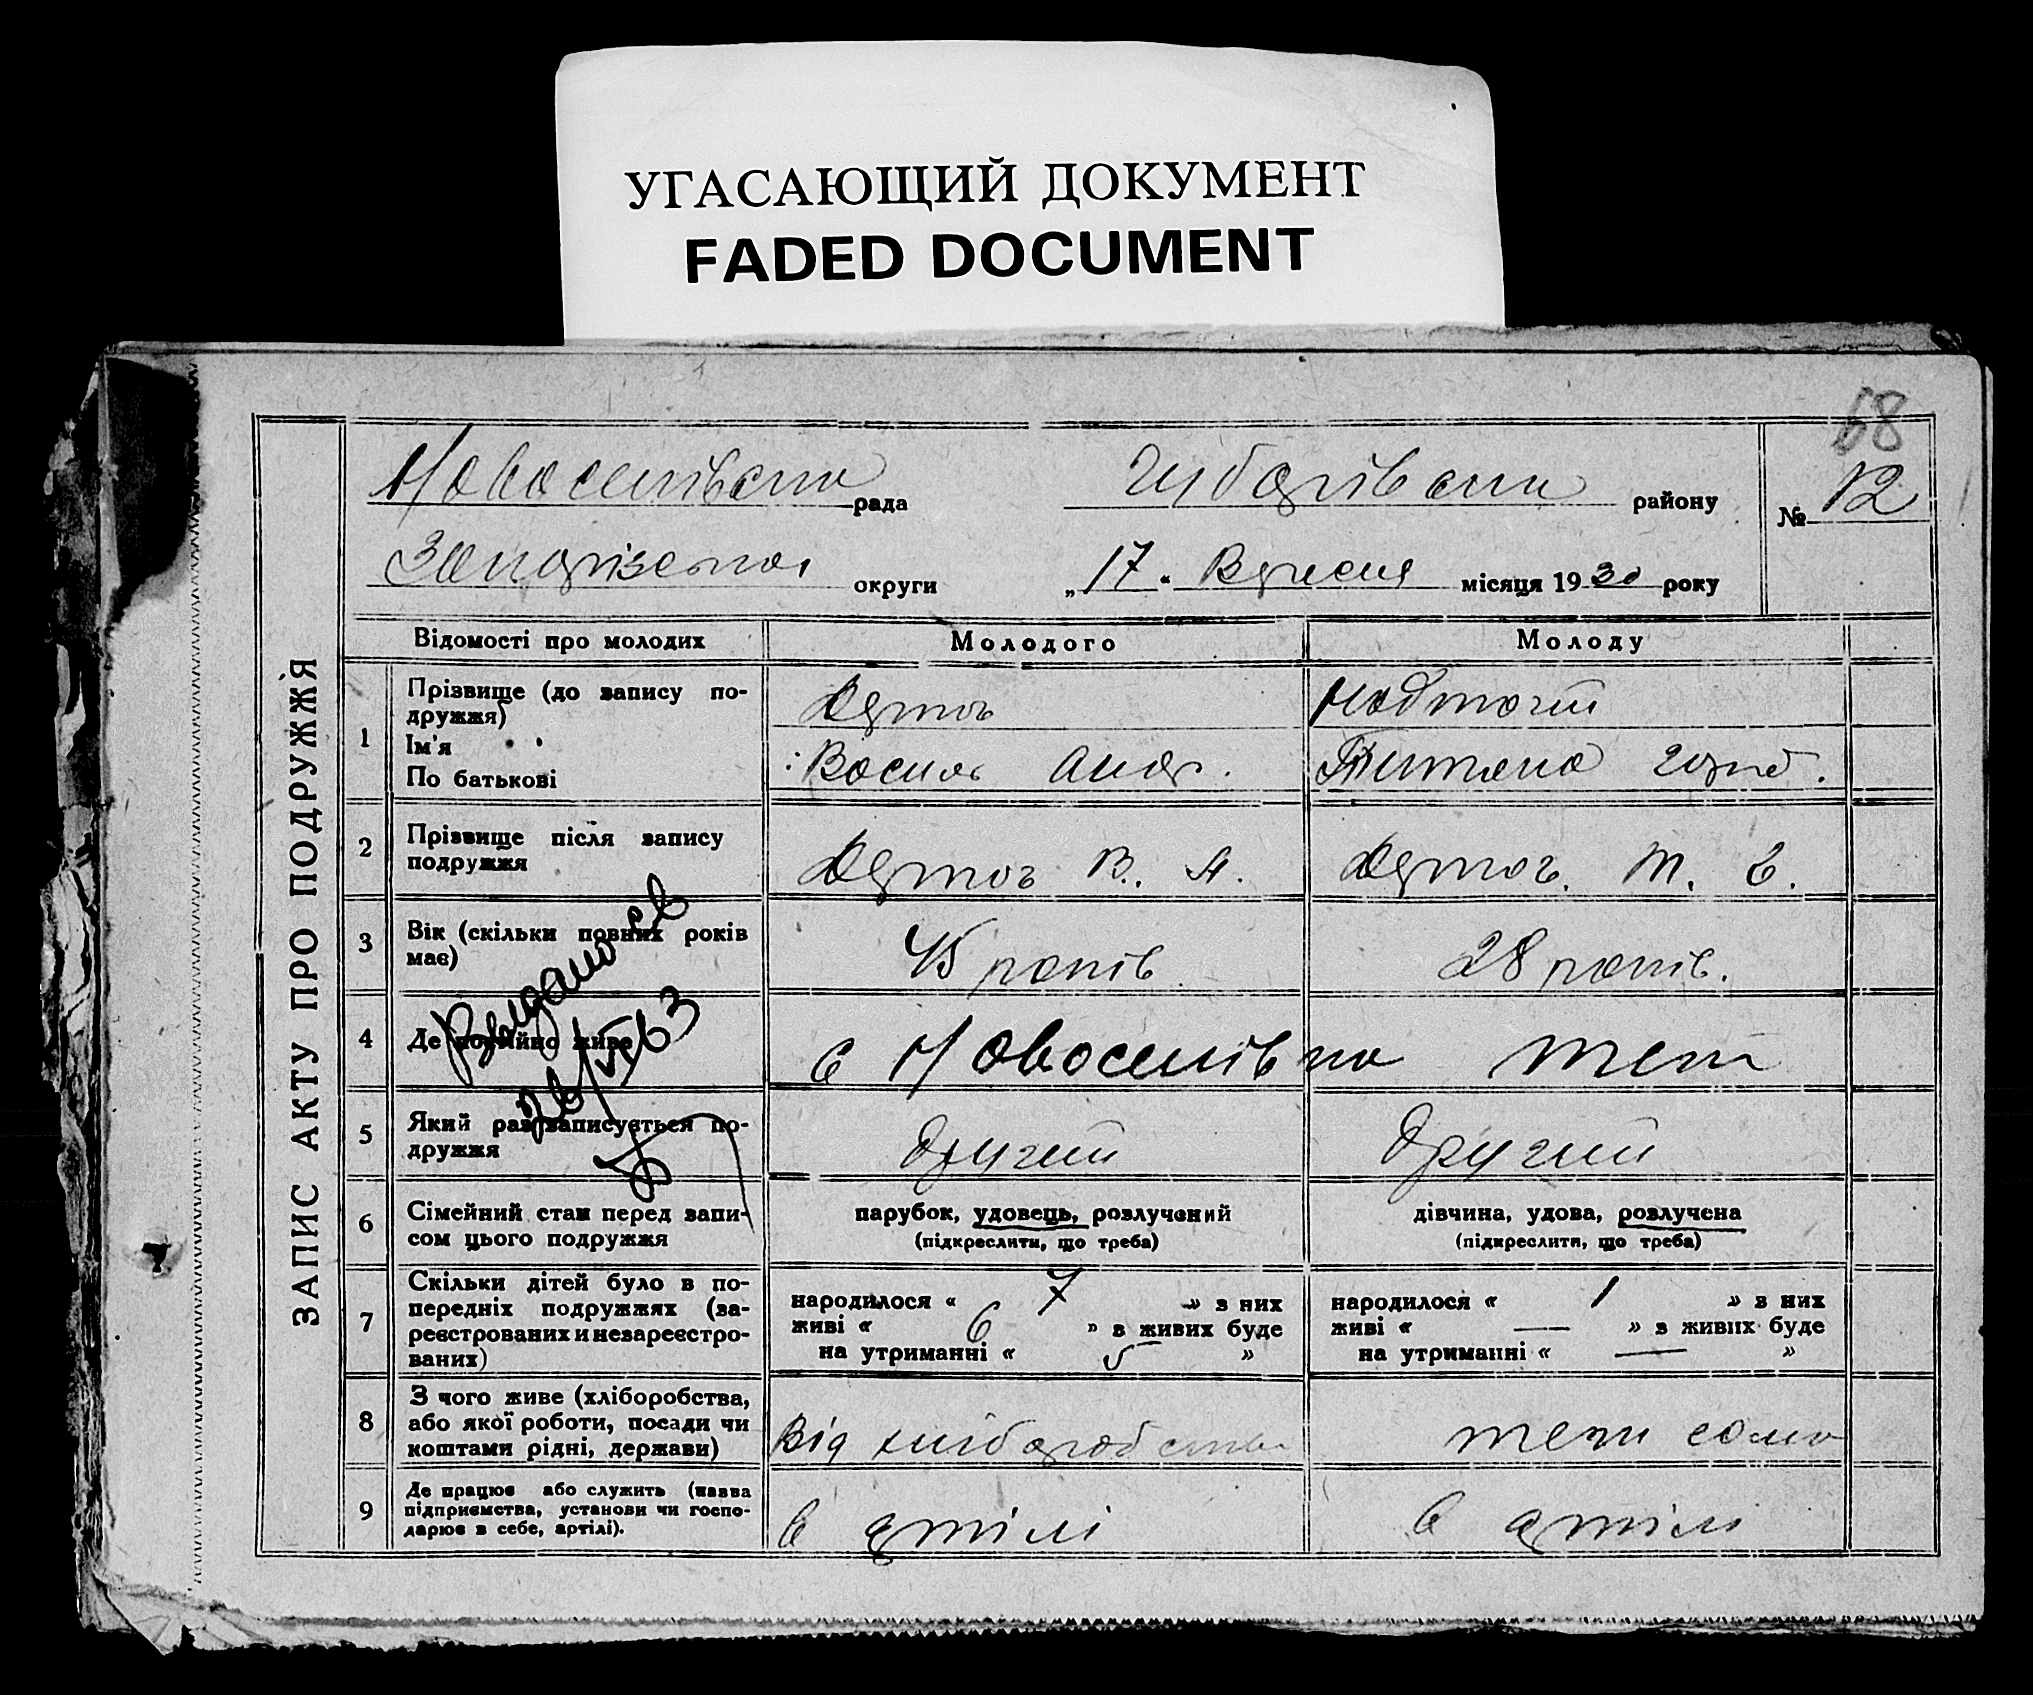 УГАСАЮЩИЙ ДОКУМЕНТ
FADED DOCUMENT
68
Новоселівська рада Чубарівськи району № 12
Запорізької округи „17“ Вересня місяця 1930 року
ЗАПИС АКТУ ПРО ПОДРУЖЖЯ
Відомості про молодих Молодого Молоду
1 Прізвище (до запису подружжя)
Ім'я
По батькові
Василь Андр. Титяна
2 Прізвище після запису подружжя
В. А. Т. Є.
3 Вік (скільки повних років має) 45 років 28 років.
4 Де постійно живе с Новоселівка теж
5 Який раз записується подружжя другий другий
6 Сімейний стан перед записом цього подружжя
парубок, удовець, розлучений
(підкреслити, що треба)
дівчина, удова, розлучена
(підкреслити, що треба)
7 Скільки дітей було в попередніх подружжях (зареєстрованих и незареєстрованих)
народилося « 7 » з них
живі « 6 » з живих буде
на утриманні « 5 »
народилося « 1 » з них
живі « — » з живих буде
на утриманні « — »
8 З чого живе (хліборобства, або якої роботи, посади чи коштами рідні, держави)
Від хліборобства теж само
9 Де працює або служить (назва підприємства, установи чи господарює в себе, артілі).
в артілі в артілі
Выдано св
26/VI 63